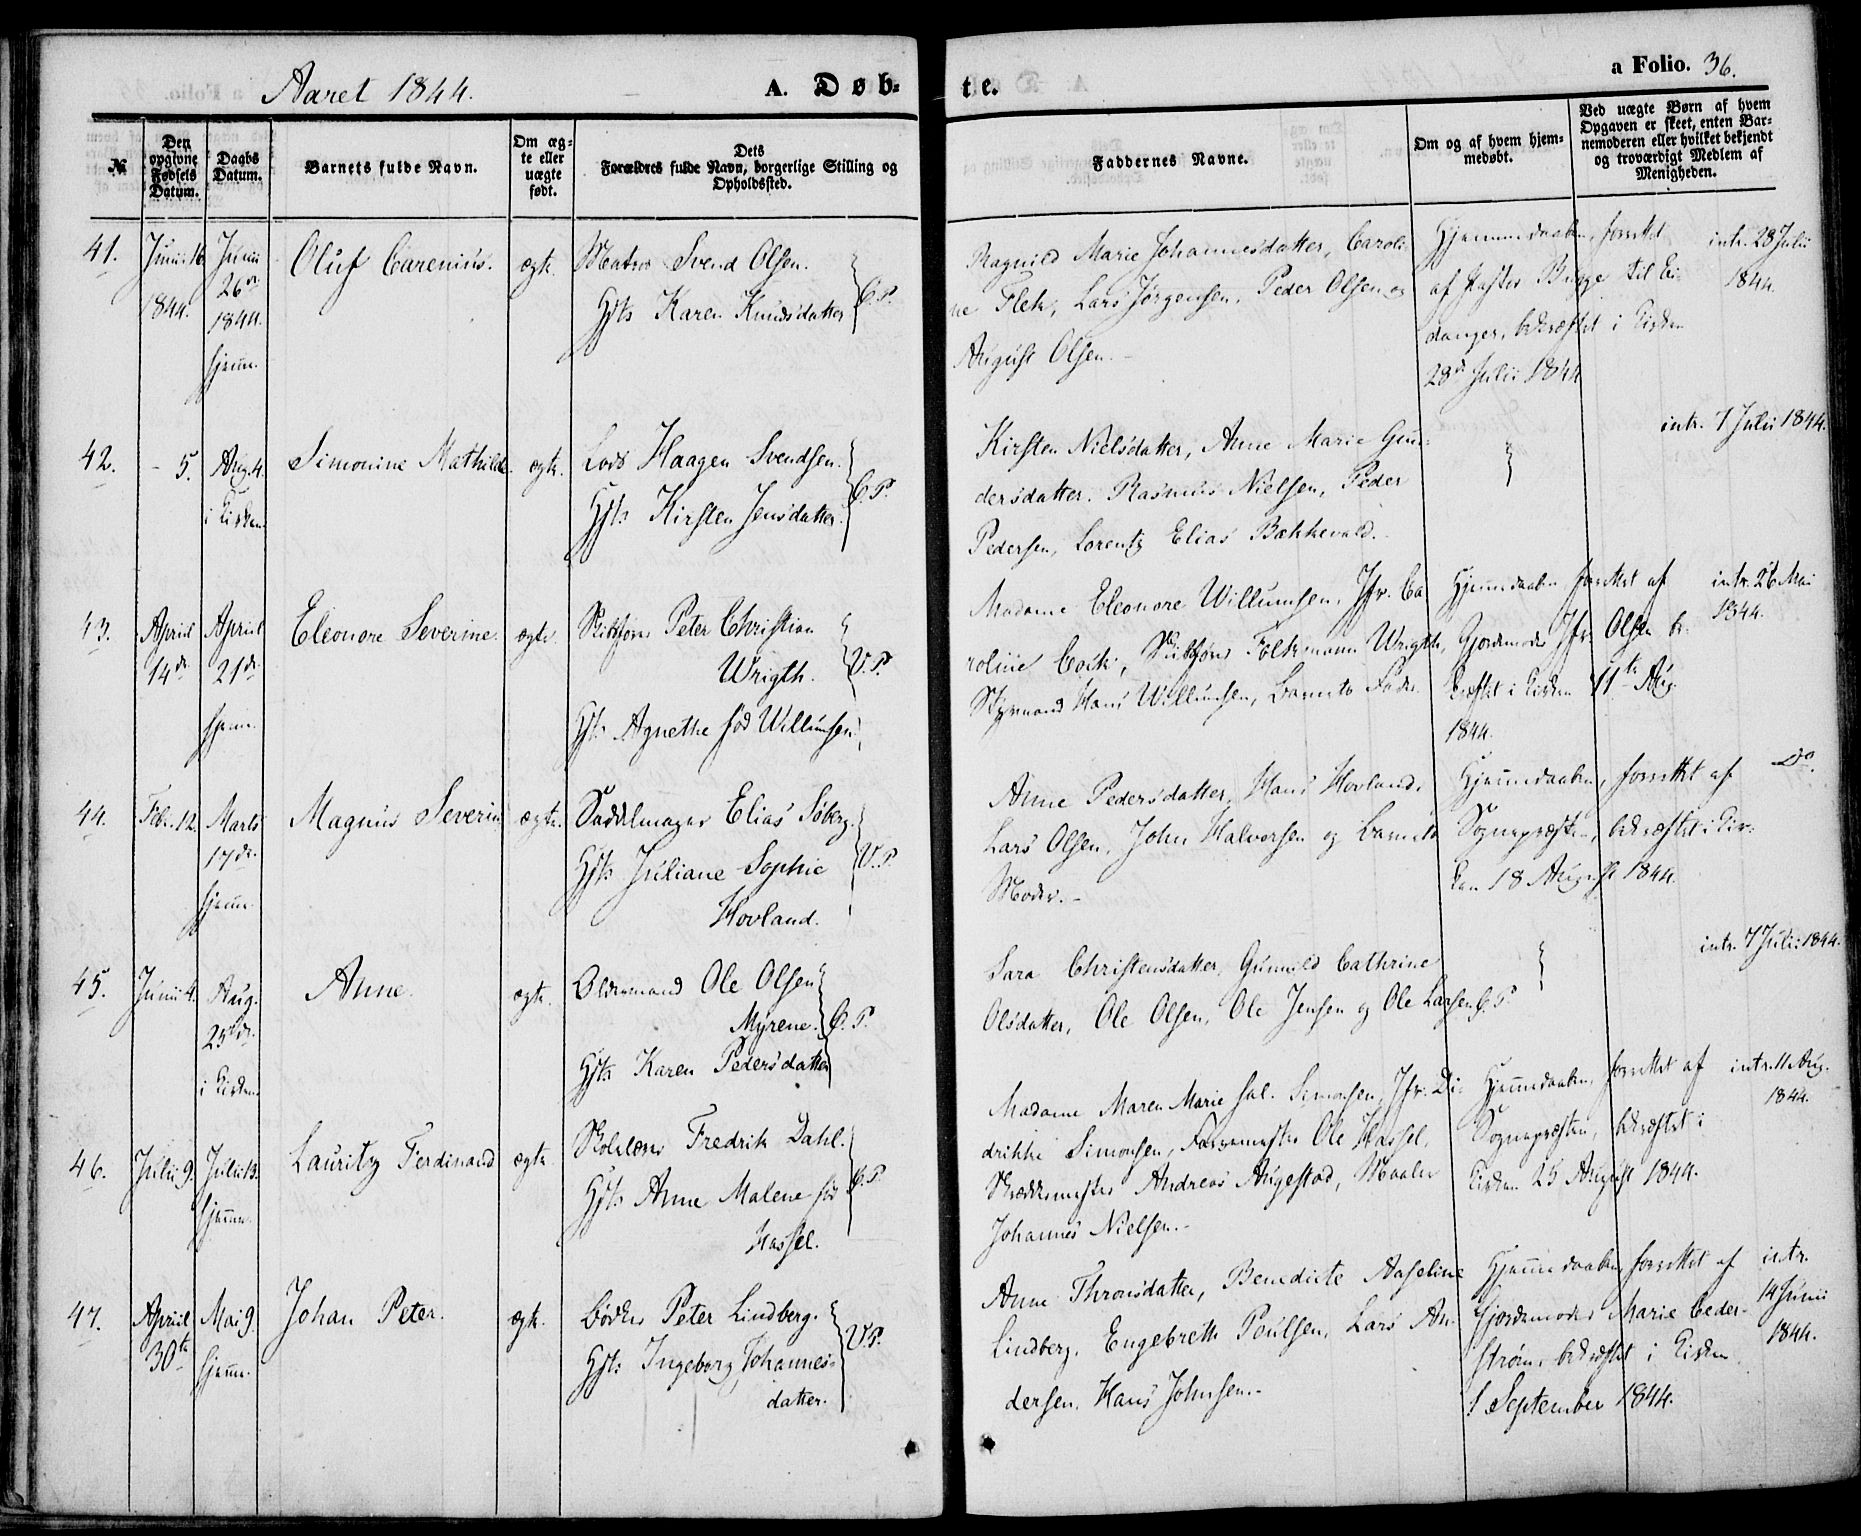 Aaret 1844.
A. Døb-
te.
a Folio. 36.
№
Den opgivne Fødsels Datum.
Daabs Datum.
Barnets fulde Navn.
Om ægte eller uægte født.
Dets Forældres fulde Navn, borgerlige Stilling og Opholdssted.
Faddernes Navne.
Om og af hvem hjemmedøbt.
Ved uægte Børn af hvem Opgaven er skeet, enten Barnemoderen eller hvilket bekjendt og troværdigt Medlem af Menigheden.
41.
Junii 16
1844.
Junii
26de
1844.
hjemme.
Oluf Carenius.
ægte.
Matros Svend Olsen.
Hst: Karen Knudsdatter
Ø.P.
Ragnild Marie Johannesdatter, Caroli-
ne Flek, Lars Jørgensen, Peder Olsen og
August Olsen.-
Hjemmedaaben, forrettet
af Pastor Bugge til Ei-
danger, bekræftet i Kirken
28de Julii 1844
intr. 28 Julii
1844.
42.
- 5.
Aug. 4.
i Kirken
Simonine Mathilde.
ægte.
Lods Haagen Svendsen.
Hst: Kirsten Jensdatter.
Ø.P.
Kirsten Nielsdatter, Anne Marie Gun-
dersdatter. Rasmus Nielsen, Peder
Pedersen, Lorentz Elias Bækkevold.
intr. 7 Julii 1844.
43.
April
14de
April
21de
hjemme.
Eleonore Severine.
ægte.
Skibsfører Peter Christian
Wrigth.
Hst: Agnethe fød Willumsen,
V.P.
Madame Eleonore Willumsen, Jfr. Ca-
roline Cock, Skibsfører Folkmann Wrigth,
Styrmand Hans Willumsen, Barnets Fader.
Hjemmedaaben forrettet af
Gjordemoder Jfr. Olsen be-
kræftet i Kirken 11te Aug.
1844.
intr. 26 Mai
1844.
44.
Febr. 12.
Marts
17de.
hjemme.
Magnus Severin
ægte.
Saddelmager Elias Søberg.
Hst: Juliane Sophie
Hovland.
V.P.
Anne Pedersdatter, Hans Hovland,
Lars Olsen, John Halvorsen og Barnets
Moder.-
Hjemmedaaben, forrettet af
Sognepræsten, bekræftet i Kir-
ken 18 August 1844.
Do.
45.
Junii 4.
Aug.
25de.
i Kirken.
Anne.
ægte.
Oldermand Ole Olsen
Myrene.
Hst: Karen Pedersdatter
Ø.P.
Sara Christensdatter, Gunnild Cathrine
Olsdatter, Ole Olsen, Ole Jensen og Ole Larsen Ø.P.
intr. 7 Julii 1844.
46.
Julii 9.
Julii 13.
hjemme.
Lauritz Ferdinand
ægte.
Skolelærer Fredrik Dahl.
Hst: Anne Malene fød
Hassel.
Ø.P.
Madame Maren Marie sal. Simonsen, Jfr. Di-
drikke Simonsen, Farvemester Ole Hassel,
Skræddermester Andreas Augestad, Maaler
Johannes Nielsen.-
Hjemmedaaben, forrettet af
Sognepræsten, bekræftet i
Kirken 25 August 1844.
intr. 11 Aug.
1844.
47.
April
30te
Mai 9.
hjemme.
Johan Peter.
ægte.
Bødker Peter Lindberg.
Hst: Ingeborg Johannes-
datter.
V.P.
Anne Thronsdatter, Benedicte Aaseline
Lindberg, Engebreth Poulsen, Lars An-
dersen, Hans Johnsen.-
Hjemmedaaben, forrettet af
Gjordemoder Marie Ceder-
strøm, bekræftet i Kirken
1 September 1844.
intr.
14 Junii
1844.